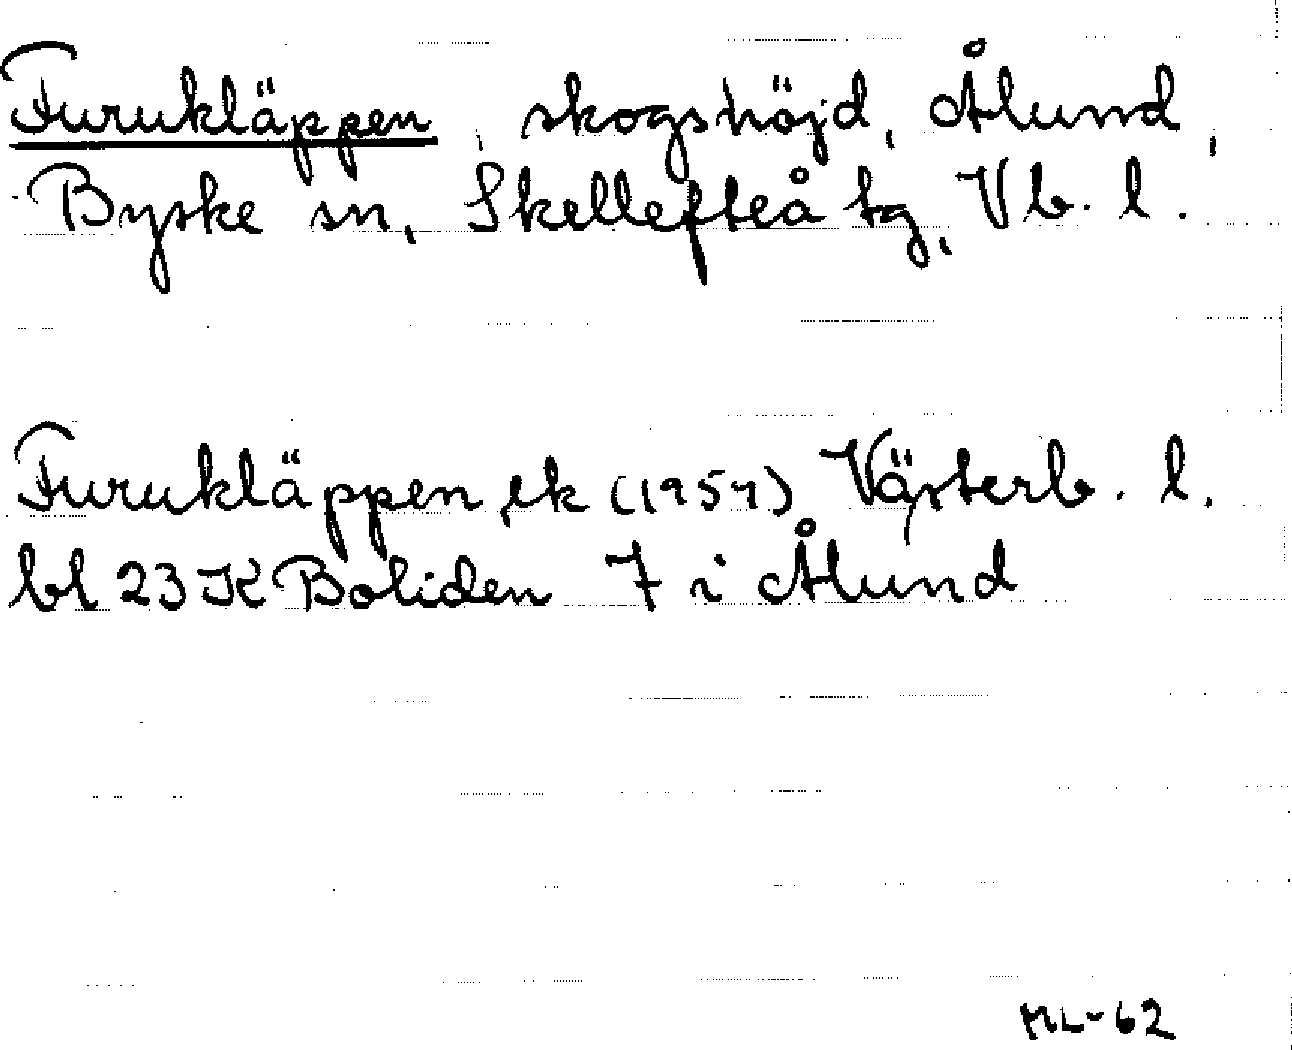 Furukläppen, skogshöjd, Ålund,
Byske sn, Skellefteå tg, Vb. l.
Furukläppen ek (1957) Västerb. l.
bl 23 K Boliden 7 i Ålund
ML-62